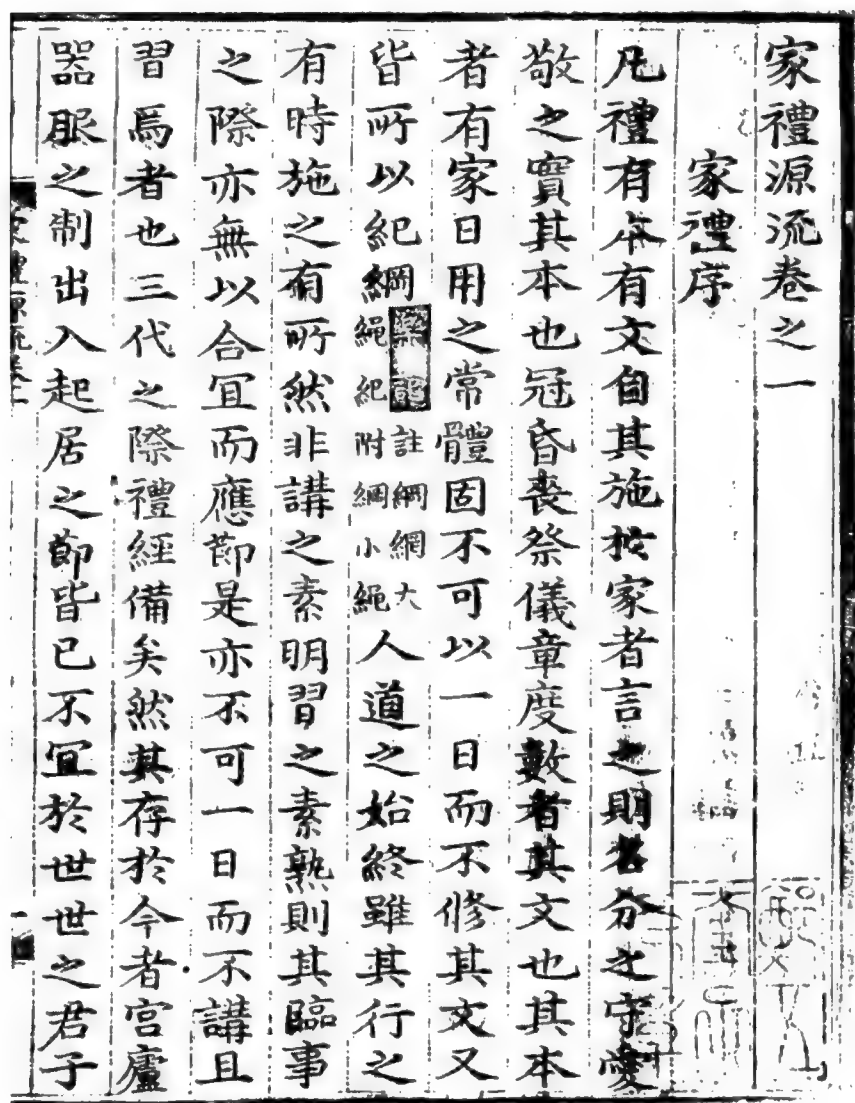 家禮源流卷之一
家禮序
凡禮有本有文自其施於家者言之則名分之守愛
敬之實其本也冠昏喪祭儀章度數者其文也其本
者有家日用之常體固不可以一日而不修其文又
皆所以紀綱
註綱網大
繩紀附綱小繩
人道之始終雖其行之
有時施之有所然非講之素明習之素熟則其臨事
之際亦無以合宜而應節是亦不可一日而不講且
習焉者也三代之際禮經備矣然其存於今者宮廬
器服之制出入起居之節皆已不宜於世世之君子
家禮源流卷之一